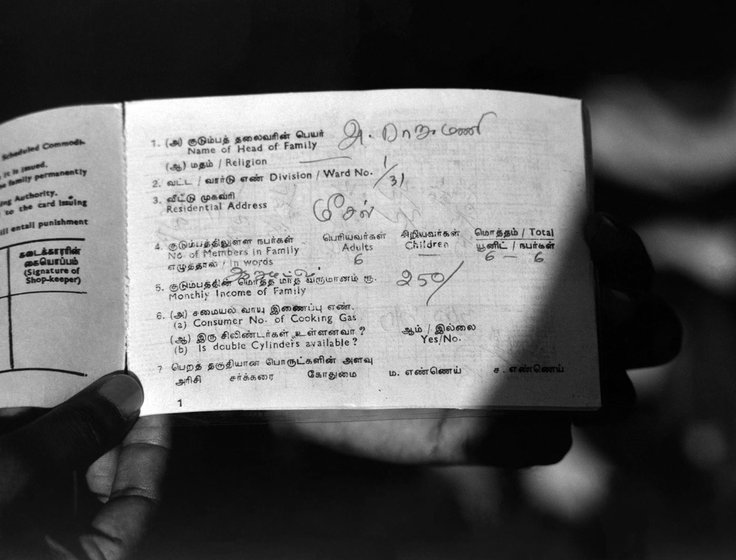 Scheduled Commodi-
it is issued.
he family permanently
ing Authority.
to the card issuing
ill entail punishment
கடைக்காரரின்
கையொப்பம்
(Signature of
Shop-keeper)
1. (அ) குடும்பத் தலைவரின் பெயர்
Name of Head of Family
(ஆ) மதம் / Religion
2. வட்ட / வார்டு எண் Division / Ward No. 1/31
3. வீட்டு முகவரி
Residential Address
மீசல்
4. குடும்பத்திலுள்ள நபர்கள் பெரியவர்கள் சிறியவர்கள் மொத்தம் / Total
No. of Members in Family Adults Children யூனிட் / நபர்கள்
எழுத்தால் / in words 6 6 — 6
5. குடும்பத்தின் மொத்த மாத வருமானம் ரூ. 250/
Monthly Income of Family
6. (அ) சமையல் வாயு இணைப்பு எண்.
(a) Consumer No. of Cooking Gas
(ஆ) இரு சிலிண்டர்கள் உள்ளனவா ? ஆம் / இல்லை
(b) Is double Cylinders available ? Yes/No.
7 பெறத் தகுதியான பொருட்களின் அளவு
அரிசி சர்க்கரை கோதுமை ம. எண்ணெய் ச. எண்ணெய்
1